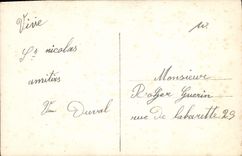 Vive
St nicolas
amitiés
Duval
Monsieur
Roger Guerin
rue de labarette 29